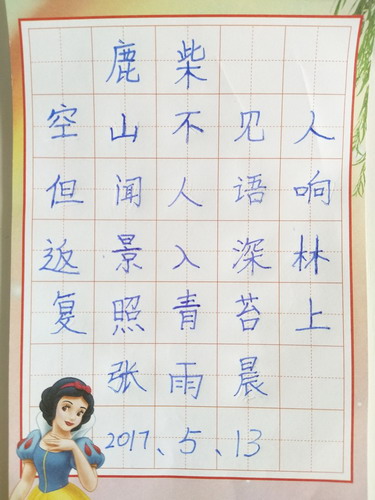 鹿柴
空山不见人
但闻人语响
返景入深林
复照青苔上
张雨晨
2017、5、13